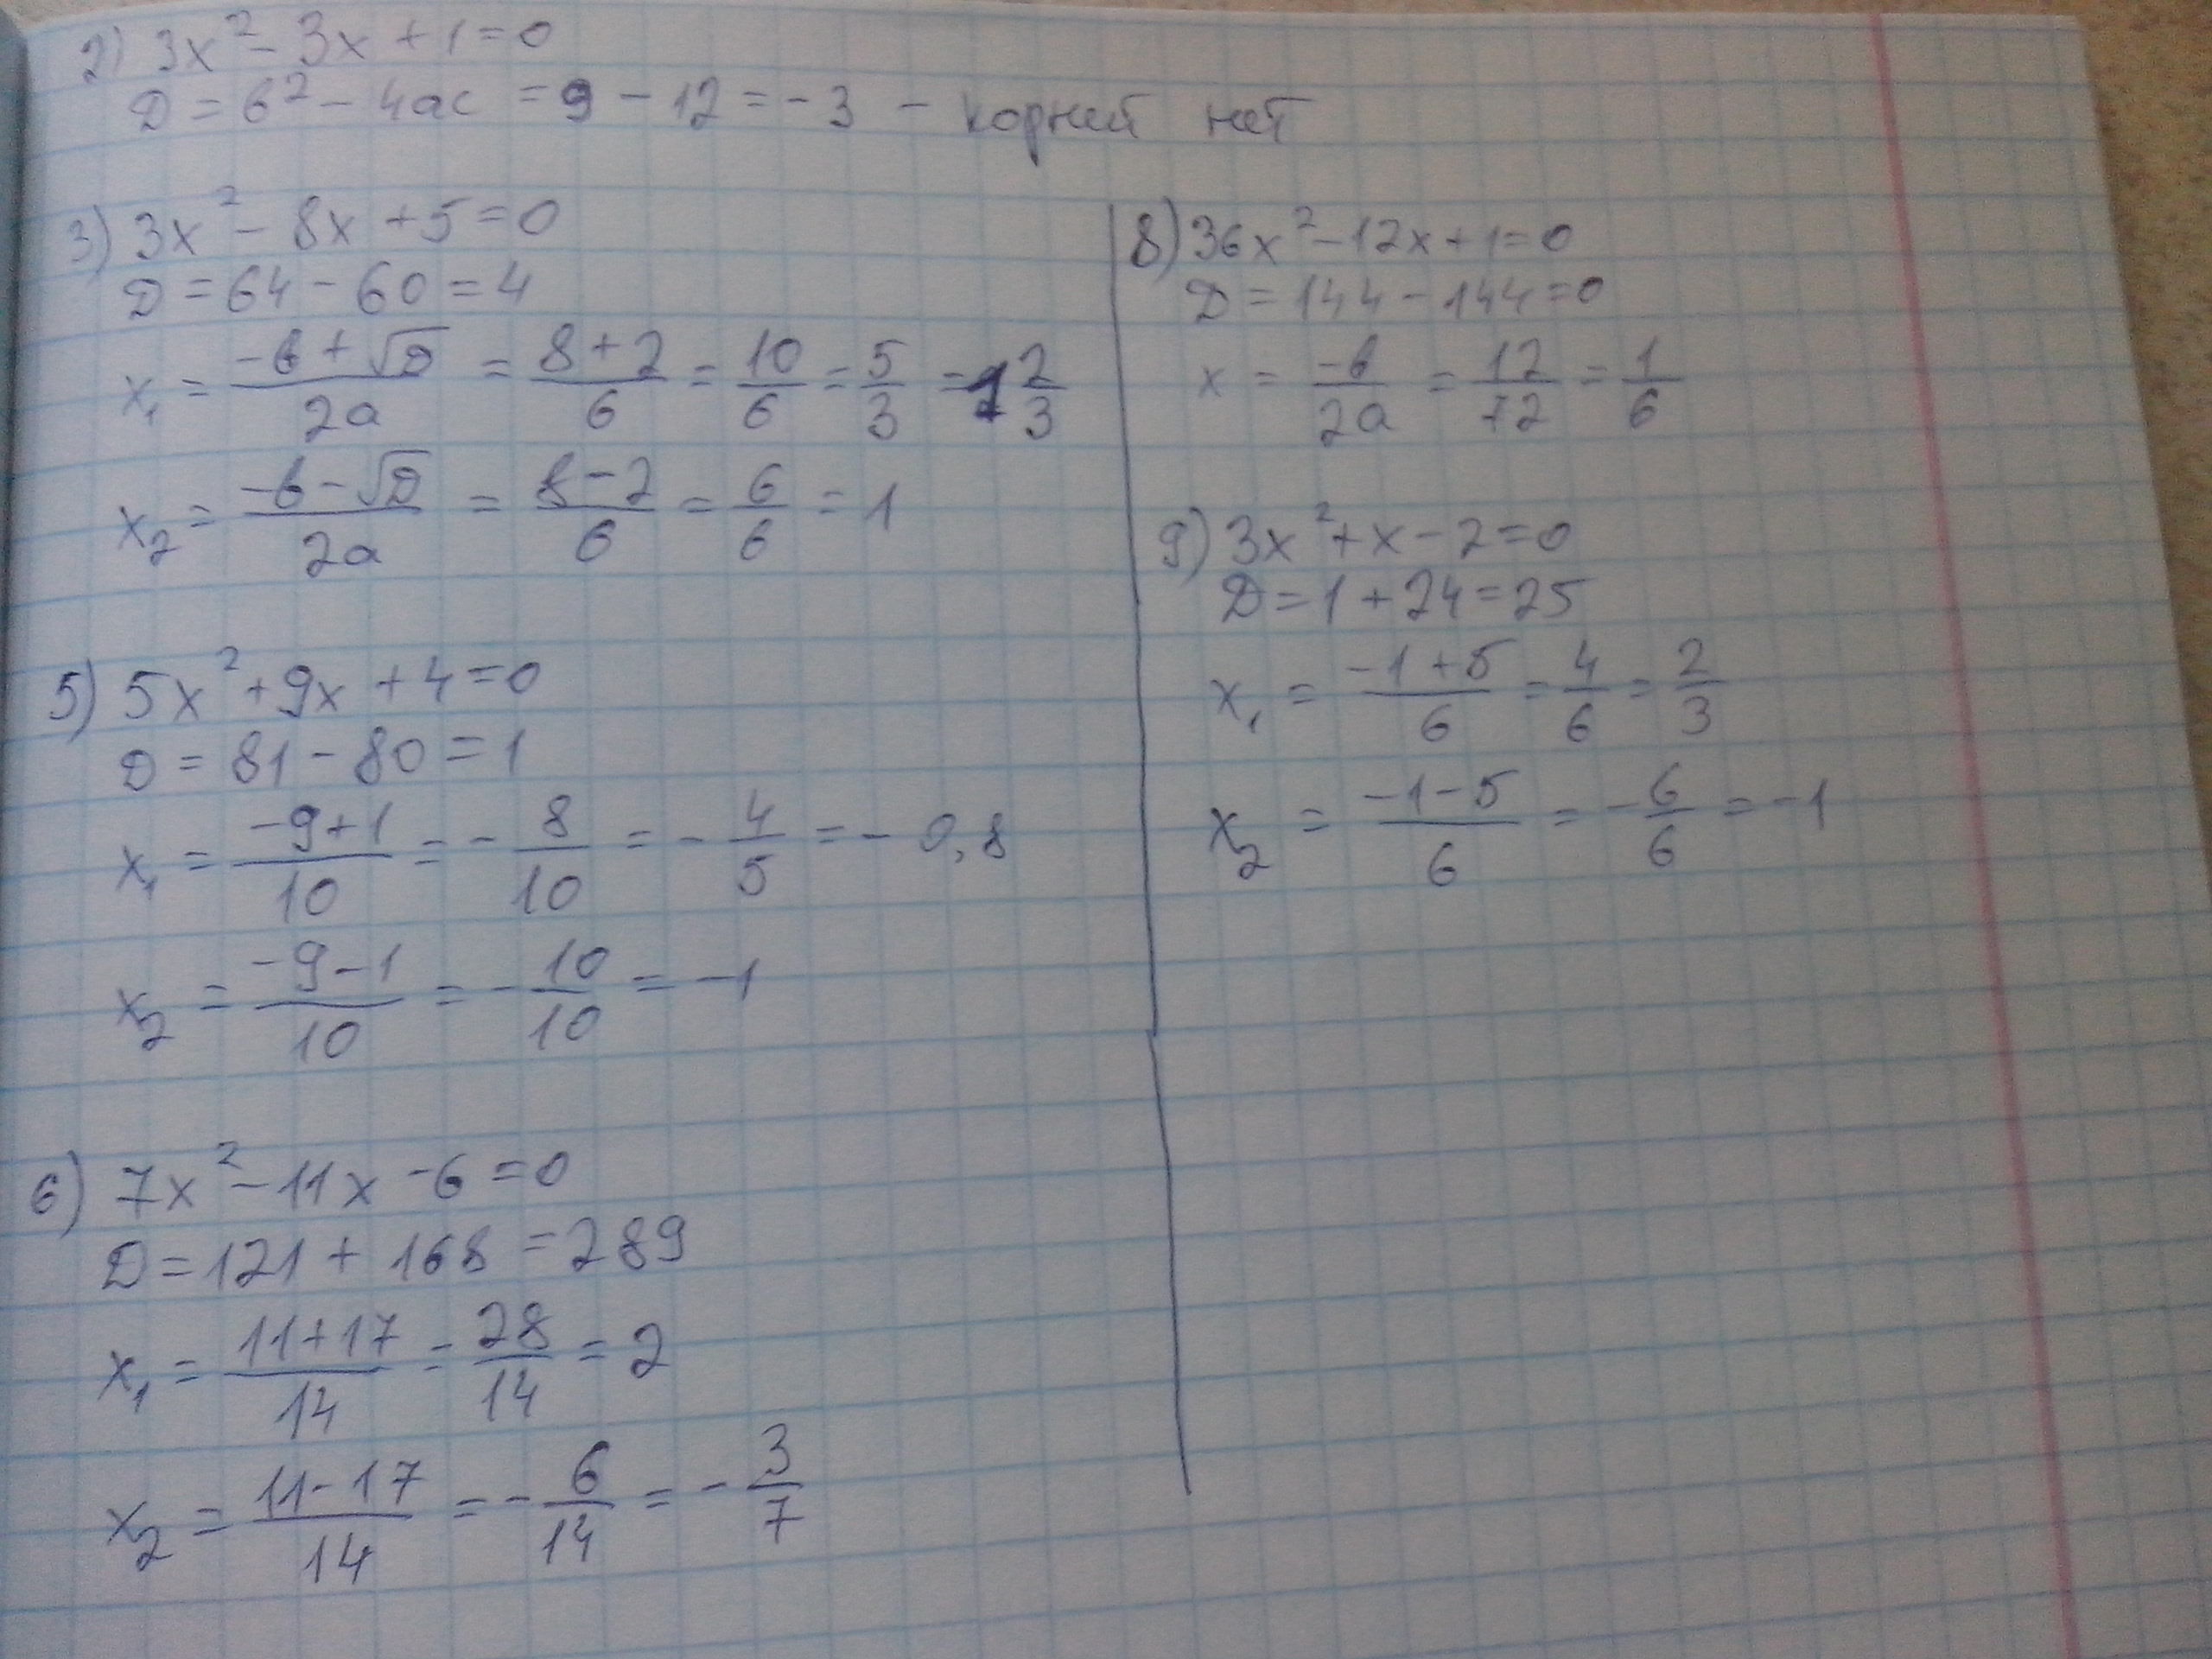 2) 3x² - 3x + 1 = 0
D = b² - 4ac = 9 - 12 = -3 - корней нет
3) 3x² - 8x + 5 = 0
D = 64 - 60 = 4
x₁ = (-b + √D)/(2a) = (8 + 2)/6 = 10/6 = 5/3 = 1 2/3
x₂ = (-b - √D)/(2a) = (8 - 2)/6 = 6/6 = 1
5) 5x² + 9x + 4 = 0
D = 81 - 80 = 1
x₁ = (-9 + 1)/10 = - 8/10 = - 4/5 = - 0,8
x₂ = (-9 - 1)/10 = - 10/10 = -1
6) 7x² - 11x - 6 = 0
D = 121 + 168 = 289
x₁ = (11 + 17)/14 = 28/14 = 2
x₂ = (11 - 17)/14 = - 6/14 = - 3/7
8) 36x² - 12x + 1 = 0
D = 144 - 144 = 0
x = -b/2a = 12/72 = 1/6
9) 3x² + x - 2 = 0
D = 1 + 24 = 25
x₁ = (-1 + 5)/6 = 4/6 = 2/3
x₂ = (-1 - 5)/6 = - 6/6 = -1